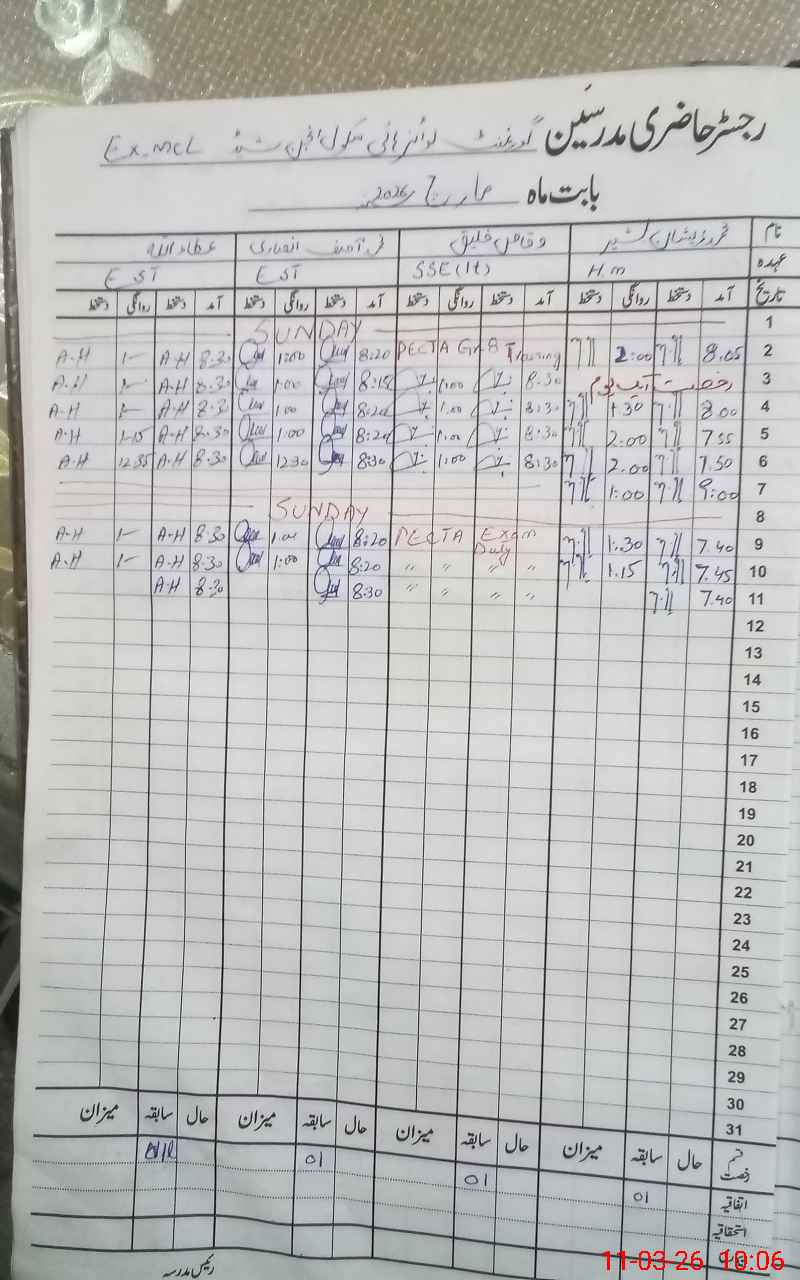 رجسٹر حاضری مدرسین گورنمنٹ بوائز ہائی سکول انجن شیڈ Ex. MCL
بابت ماہ مارچ 2026
نام محمد ذیشان وقاص خلیق آصف انصاری عطاء اللہ
عہدہ H.m SSE(It) EST EST
تاریخ آمد دستخط روانگی دستخط آمد دستخط روانگی دستخط آمد دستخط روانگی دستخط آمد دستخط روانگی دستخط
1 SUNDAY
2 8.05 2:00 PECTA Gr 8 Training 8:20 1:00 8.30 A-H 1- A-H
3 رخصت ایک یوم 8.30 1:00 8:15 1:00 8.30 A-H 1- A-H
4 8.00 1.30 8:30 1.00 8:20 1.00 8.30 A-H 1- A-H
5 7.55 2:00 8:30 1.00 8:20 1:00 8.30 A-H 1-15 A-H
6 7.50 2.00 8:30 1:00 8:30 12:30 8.30 A-H 12.35 A-H
7 9:00 1:00
8 SUNDAY
9 7.40 1.30 PECTA Exam Duty 8:20 1.00 8.30 A-H 1- A-H
10 7.45 1.15 " " " " 8:20 1:00 8.30 A-H 1- A-H
11 7.40 " " " " 8:30 8.30 A-H
12
13
14
15
16
17
18
19
20
21
22
23
24
25
26
27
28
29
30
31
حال سابقہ میزان حال سابقہ میزان حال سابقہ میزان حال سابقہ میزان
قسم رخصت
اتفاقیہ 01 01 01
استحقاقیہ
رئیس مدرسہ
11-03-26 10:06